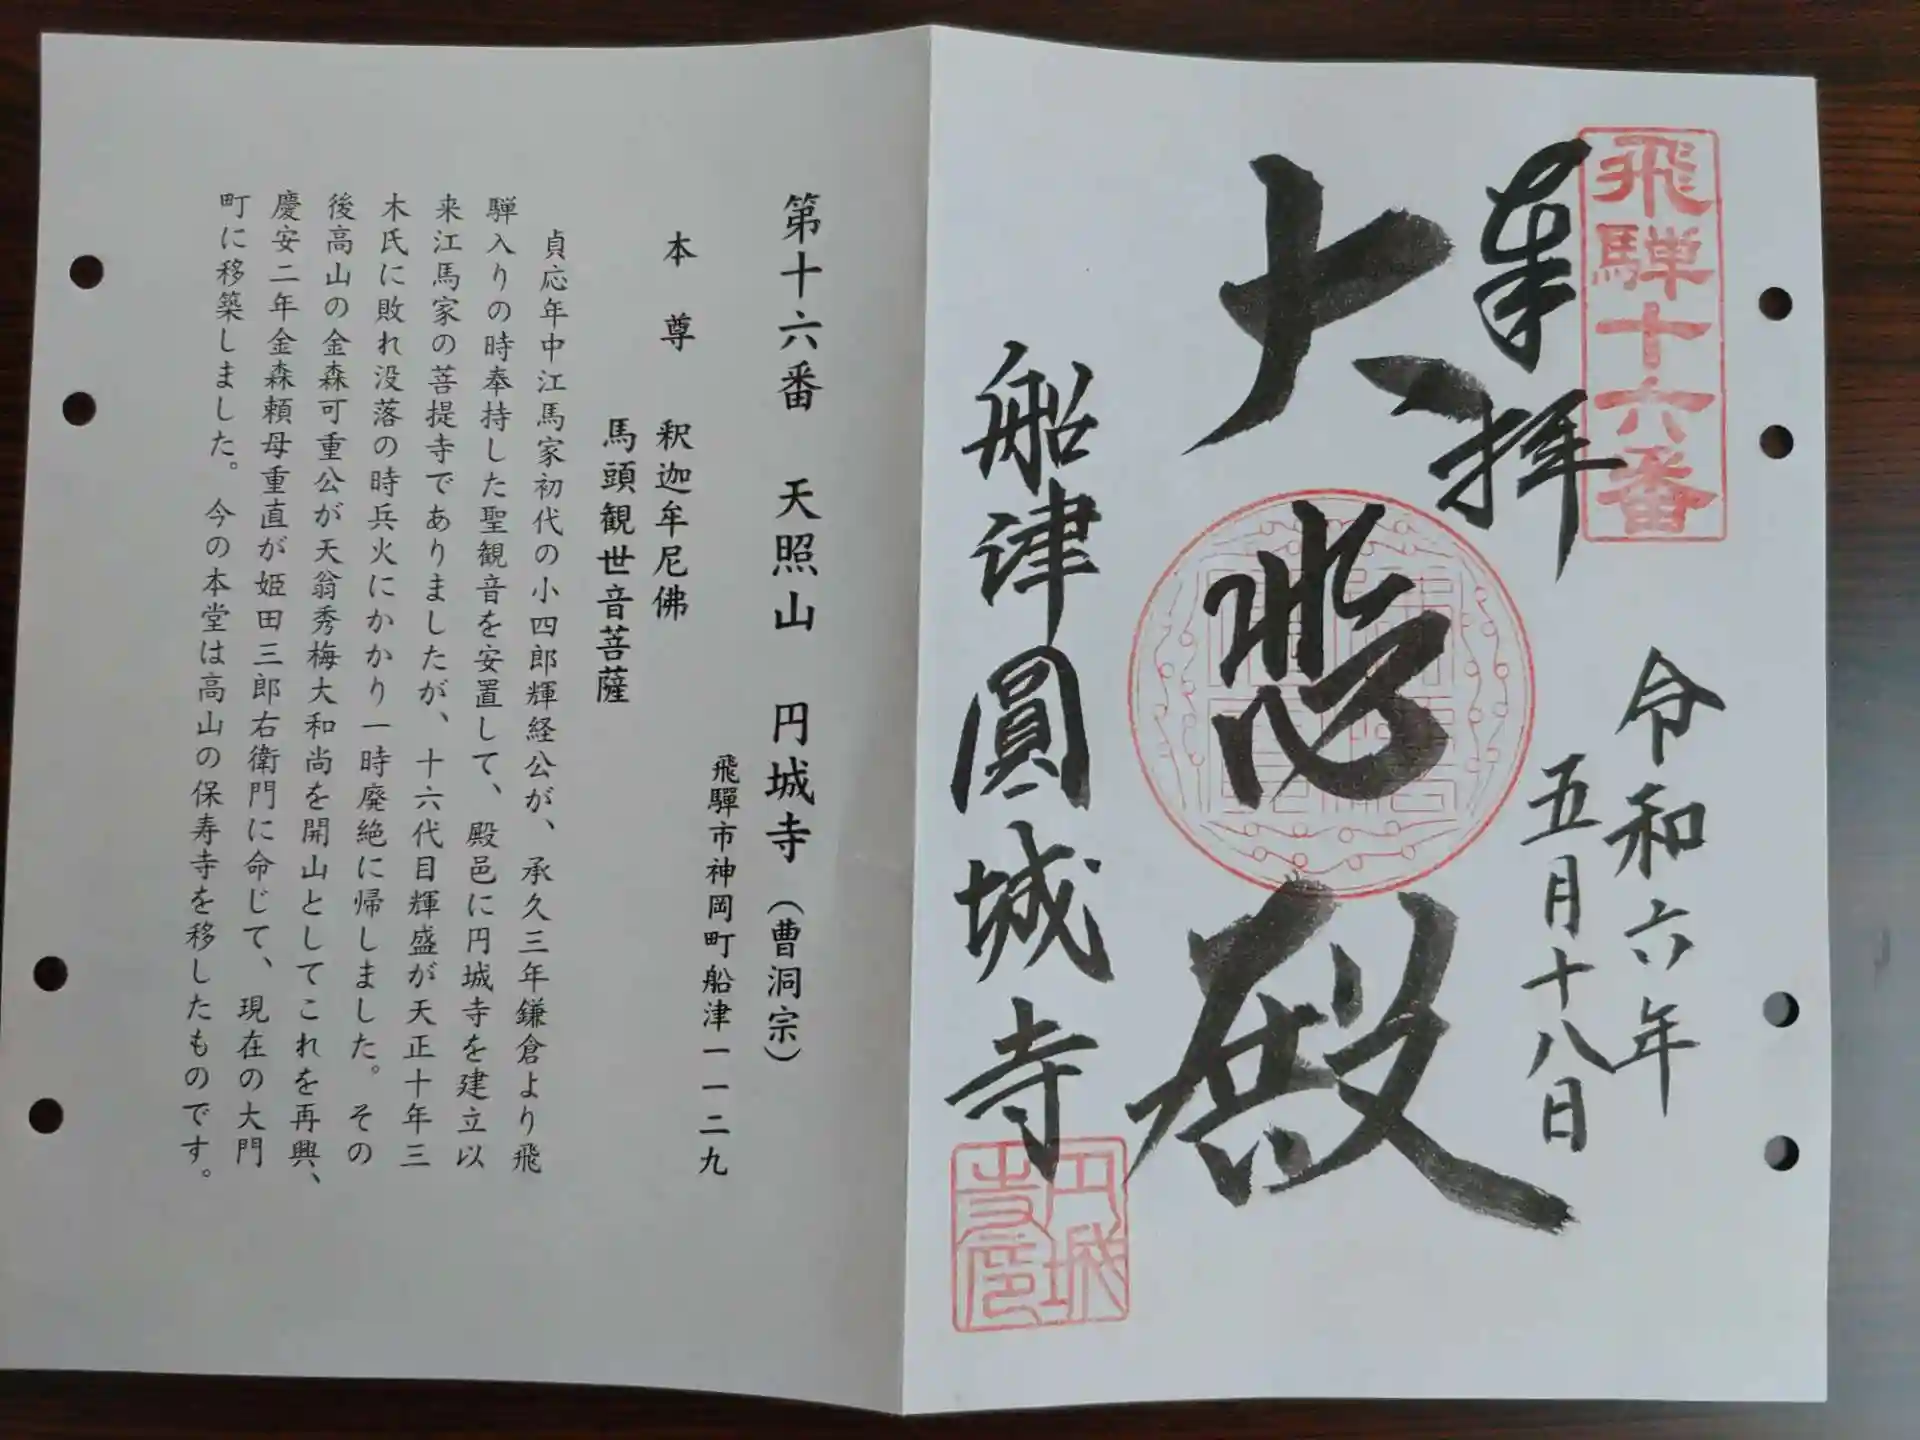 飛騨十六番
奉拝
令和六年
五月十八日
大悲殿
船津圓城寺
円城寺印
第十六番 天照山 円城寺（曹洞宗）
飛騨市神岡町船津一一二九
本尊 釈迦牟尼佛
馬頭観世音菩薩
貞応年中江馬家初代の小四郎輝経公が、承久三年鎌倉より飛
騨入りの時奉持した聖観音を安置して、殿邑に円城寺を建立以
来江馬家の菩提寺でありましたが、十六代目輝盛が天正十年三
木氏に敗れ没落の時兵火にかかり一時廃絶に帰しました。その
後高山の金森可重公が天翁秀梅大和尚を開山としてこれを再興、
慶安二年金森頼母重直が姫田三郎右衛門に命じて、現在の大門
町に移築しました。今の本堂は高山の保寿寺を移したものです。